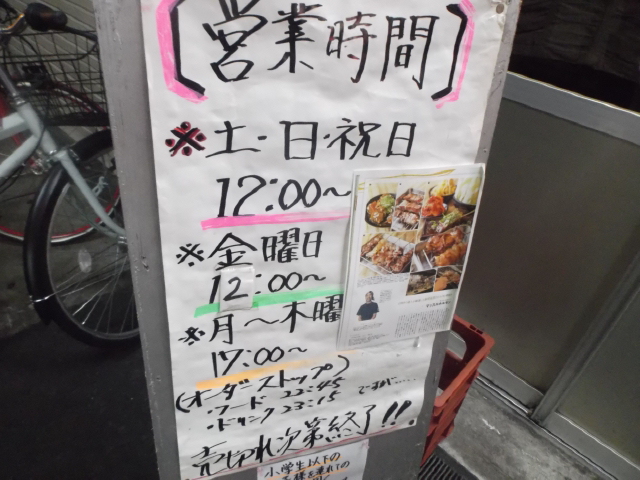 【営業時間】
※土・日・祝日
12:00～
※金曜日
12:00～
※月～木曜
17:00～
(オーダーストップ)
・フード 22:45
・ドリンク 23:15 ですが……
売切れ次第終了!!
小学生以下の